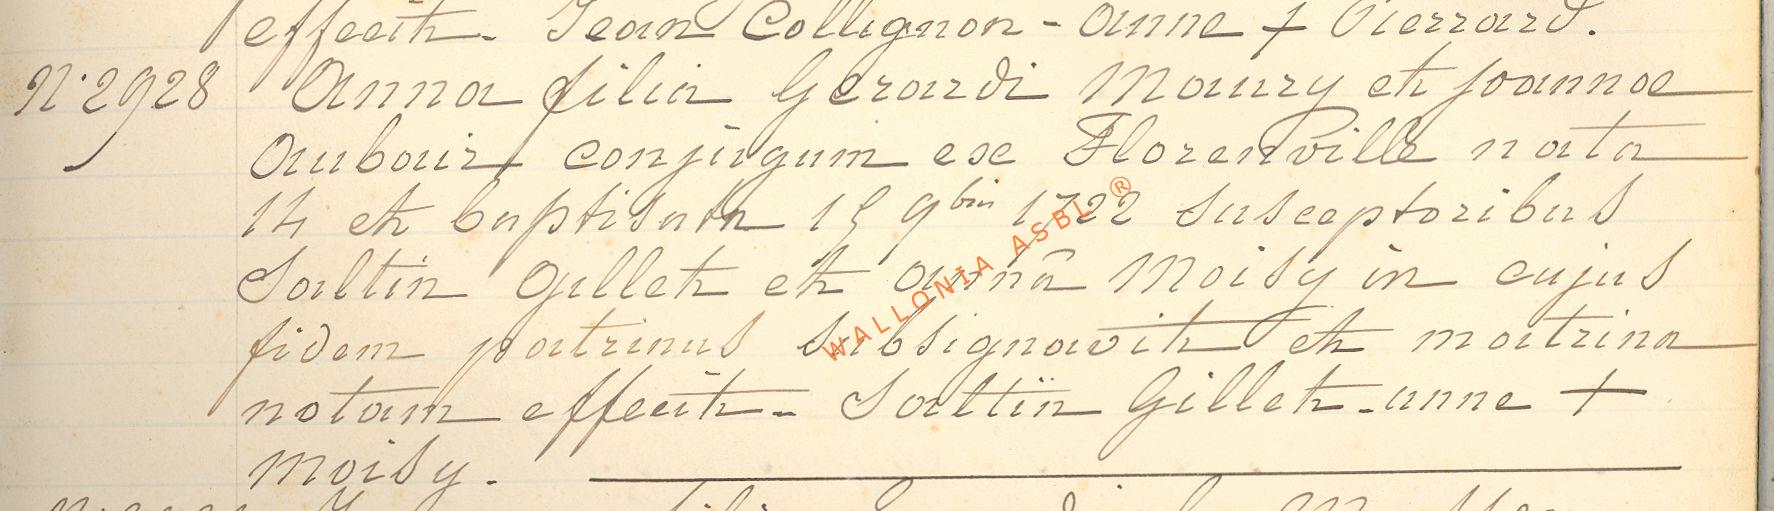 effecit. Jean Collignon - anne + Pierrard.
N° 2928 Anna filia Gerardi Maury et Joannae
Aubair conjugum ex Florenville nata
14 et baptisata 15 9bris 1722 susceptoribus
Saltin Gillet et Anna Moisy in cujus
fidem patrinus subsignavit et matrina
notam effecit. Saltin Gillet. anne +
Moisy.
WALLONIA ASBL ®